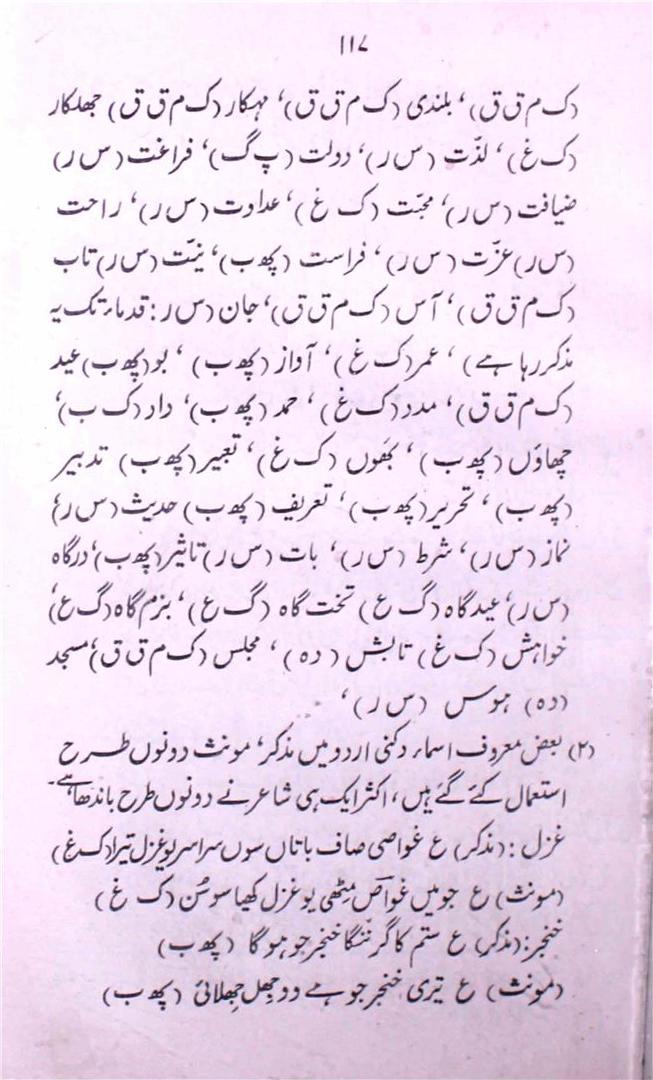 ۱۱۷
(ک م ق ق)، بلندی (ک م ق ق)، مہکار (ک م ق ق) جھلکار
(ک غ)، لذّت (س ر)، دولت (پ گ)، فراغت (س ر)
ضیافت (س ر)، محبّت (ک غ)، عداوت (س ر)، راحت
(س ر) عزّت (س ر)، فراست (پھ ب)، نیّت (س ر) تاب
(ک م ق ق)، آس (ک م ق ق)، جان (س ر: قدماء تک یہ
مذکر رہا ہے)، عمر (ک غ)، آواز (پھ ب)، بو (پھ ب) عید
(ک م ق ق)، مدد (ک غ)، حمد (پھ ب)، داد (ک ب)،
چھاؤں (پھ ب)، بھَوں (ک غ)، تعبیر (پھ ب) تدبیر
(پھ ب)، تحریر (پھ ب)، تعریف (پھ ب) حدیث (س ر)،
نماز (س ر)، شرط (س ر)، بات (س ر) تاثیر (پھ ب)، درگاہ
(س ر)، عیدگاہ (گ ع) تخت گاہ (گ ع)، بزم گاہ (گ ع)،
خواہش (ک غ) تابش (دہ)، مجلس (ک م ق ق)، مسجد
(دہ) ہوس (س ر)،
(۲) بعض معروف اسماء دکنی اردو میں مذکر، مونث دونوں طرح
استعمال کئے گئے ہیں، اکثر ایک ہی شاعر نے دونوں طرح باندھا ہے۔
غزل: (مذکر) ع غواصی صاف باتاں سوں سراسر یو غزل تیرا (ک غ)
(مونث) ع جو میں غوّاص مِٹھی یو غزل کھیا سو سُن (ک غ)
خنجر: (مذکر) ع ستم کا گر ننگا خنجر جو ہوگا (پھ ب)
(مونث) ع تیری خنجر جو ہے دو جھل جِھلائی (پھ ب)